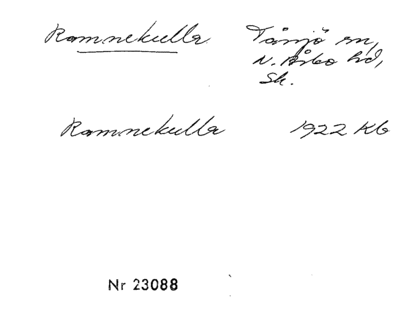 Ramnekulla Tåssjö sn,
N. Åsbo hd,
Sk.
Ramnekulla 1922 Kb
Nr 23088